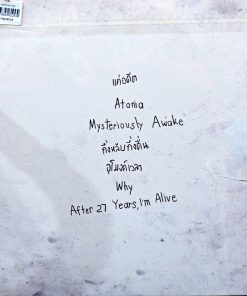 แค่อดีต
Atonia
Mysteriously Awake
กึ่งหลับกึ่งตื่น
อุโมงค์เวลา
Why
After 27 Years, I'm Alive